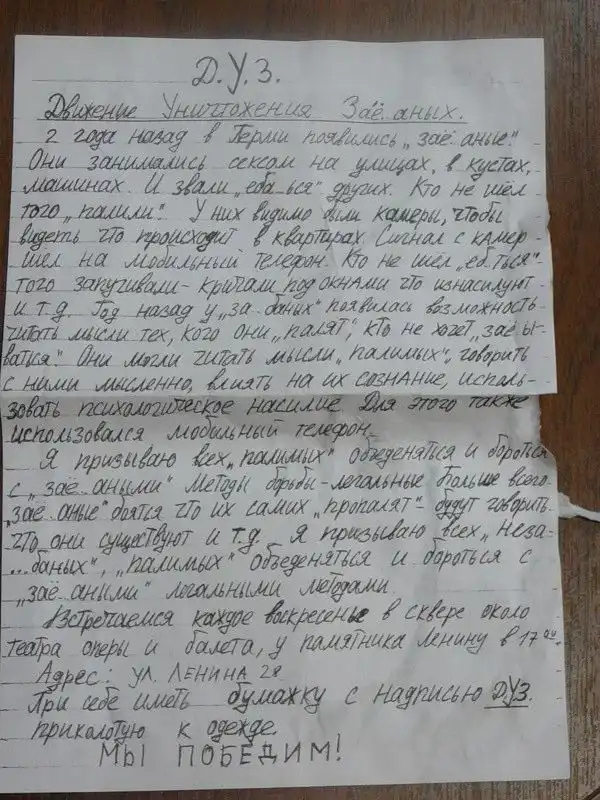 Д.У.З.
Движение Уничтожения Заё аных.
2 года назад в Перми появились „заё аные".
Они занимались сексом на улицах, в кустах,
машинах. И звали „еба ься" других. Кто не шёл
того „палили". У них видимо были камеры, чтобы
видеть что происходит в квартирах. Сигнал с камер
шёл на мобильный телефон. Кто не шёл „еб ться"
того запугивали - кричали под окнами что изнасилуют
и т.д. Год назад у „за баных" появилась возможность
читать мысли тех, кого они „палят", кто не хочет „заё ы-
ваться". Они могли читать мысли „палимых", говорить
с ними мысленно, влиять на их сознание, исполь-
зовать психологическое насилие. Для этого также
использовался мобильный телефон.
Я призываю всех „палимых" объеденяться и бороться
с „заё аными". Методы борьбы - легальные. Больше всего
„заё аные" боятся что их самих „пропалят" - будут говорить
что они существуют и т.д. Я призываю всех „неза-
...баных", „палимых" объеденяться и бороться с
„заё аными" легальными методами.
Встречаемся каждое воскресенье в сквере около
театра оперы и балета, у памятника Ленину в 17 00.
Адрес: ул. ЛЕНИНА 28
При себе иметь бумажку с надписью Д.У.З.
приколотую к одежде.
МЫ ПОБЕДИМ!